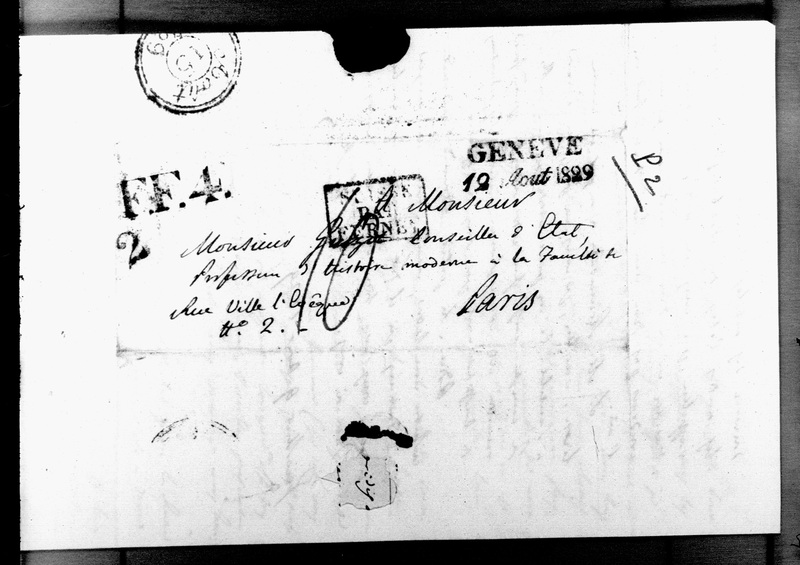 15
Août
GENEVE
12 Aout 1829
P2
F.F.4.
2
FERNEY
A Monsieur
Monsieur Guizot Conseiller d'Etat,
Professeur d'histoire moderne à la Faculté de
Rue Ville l'Evêque
Paris
No. 2.